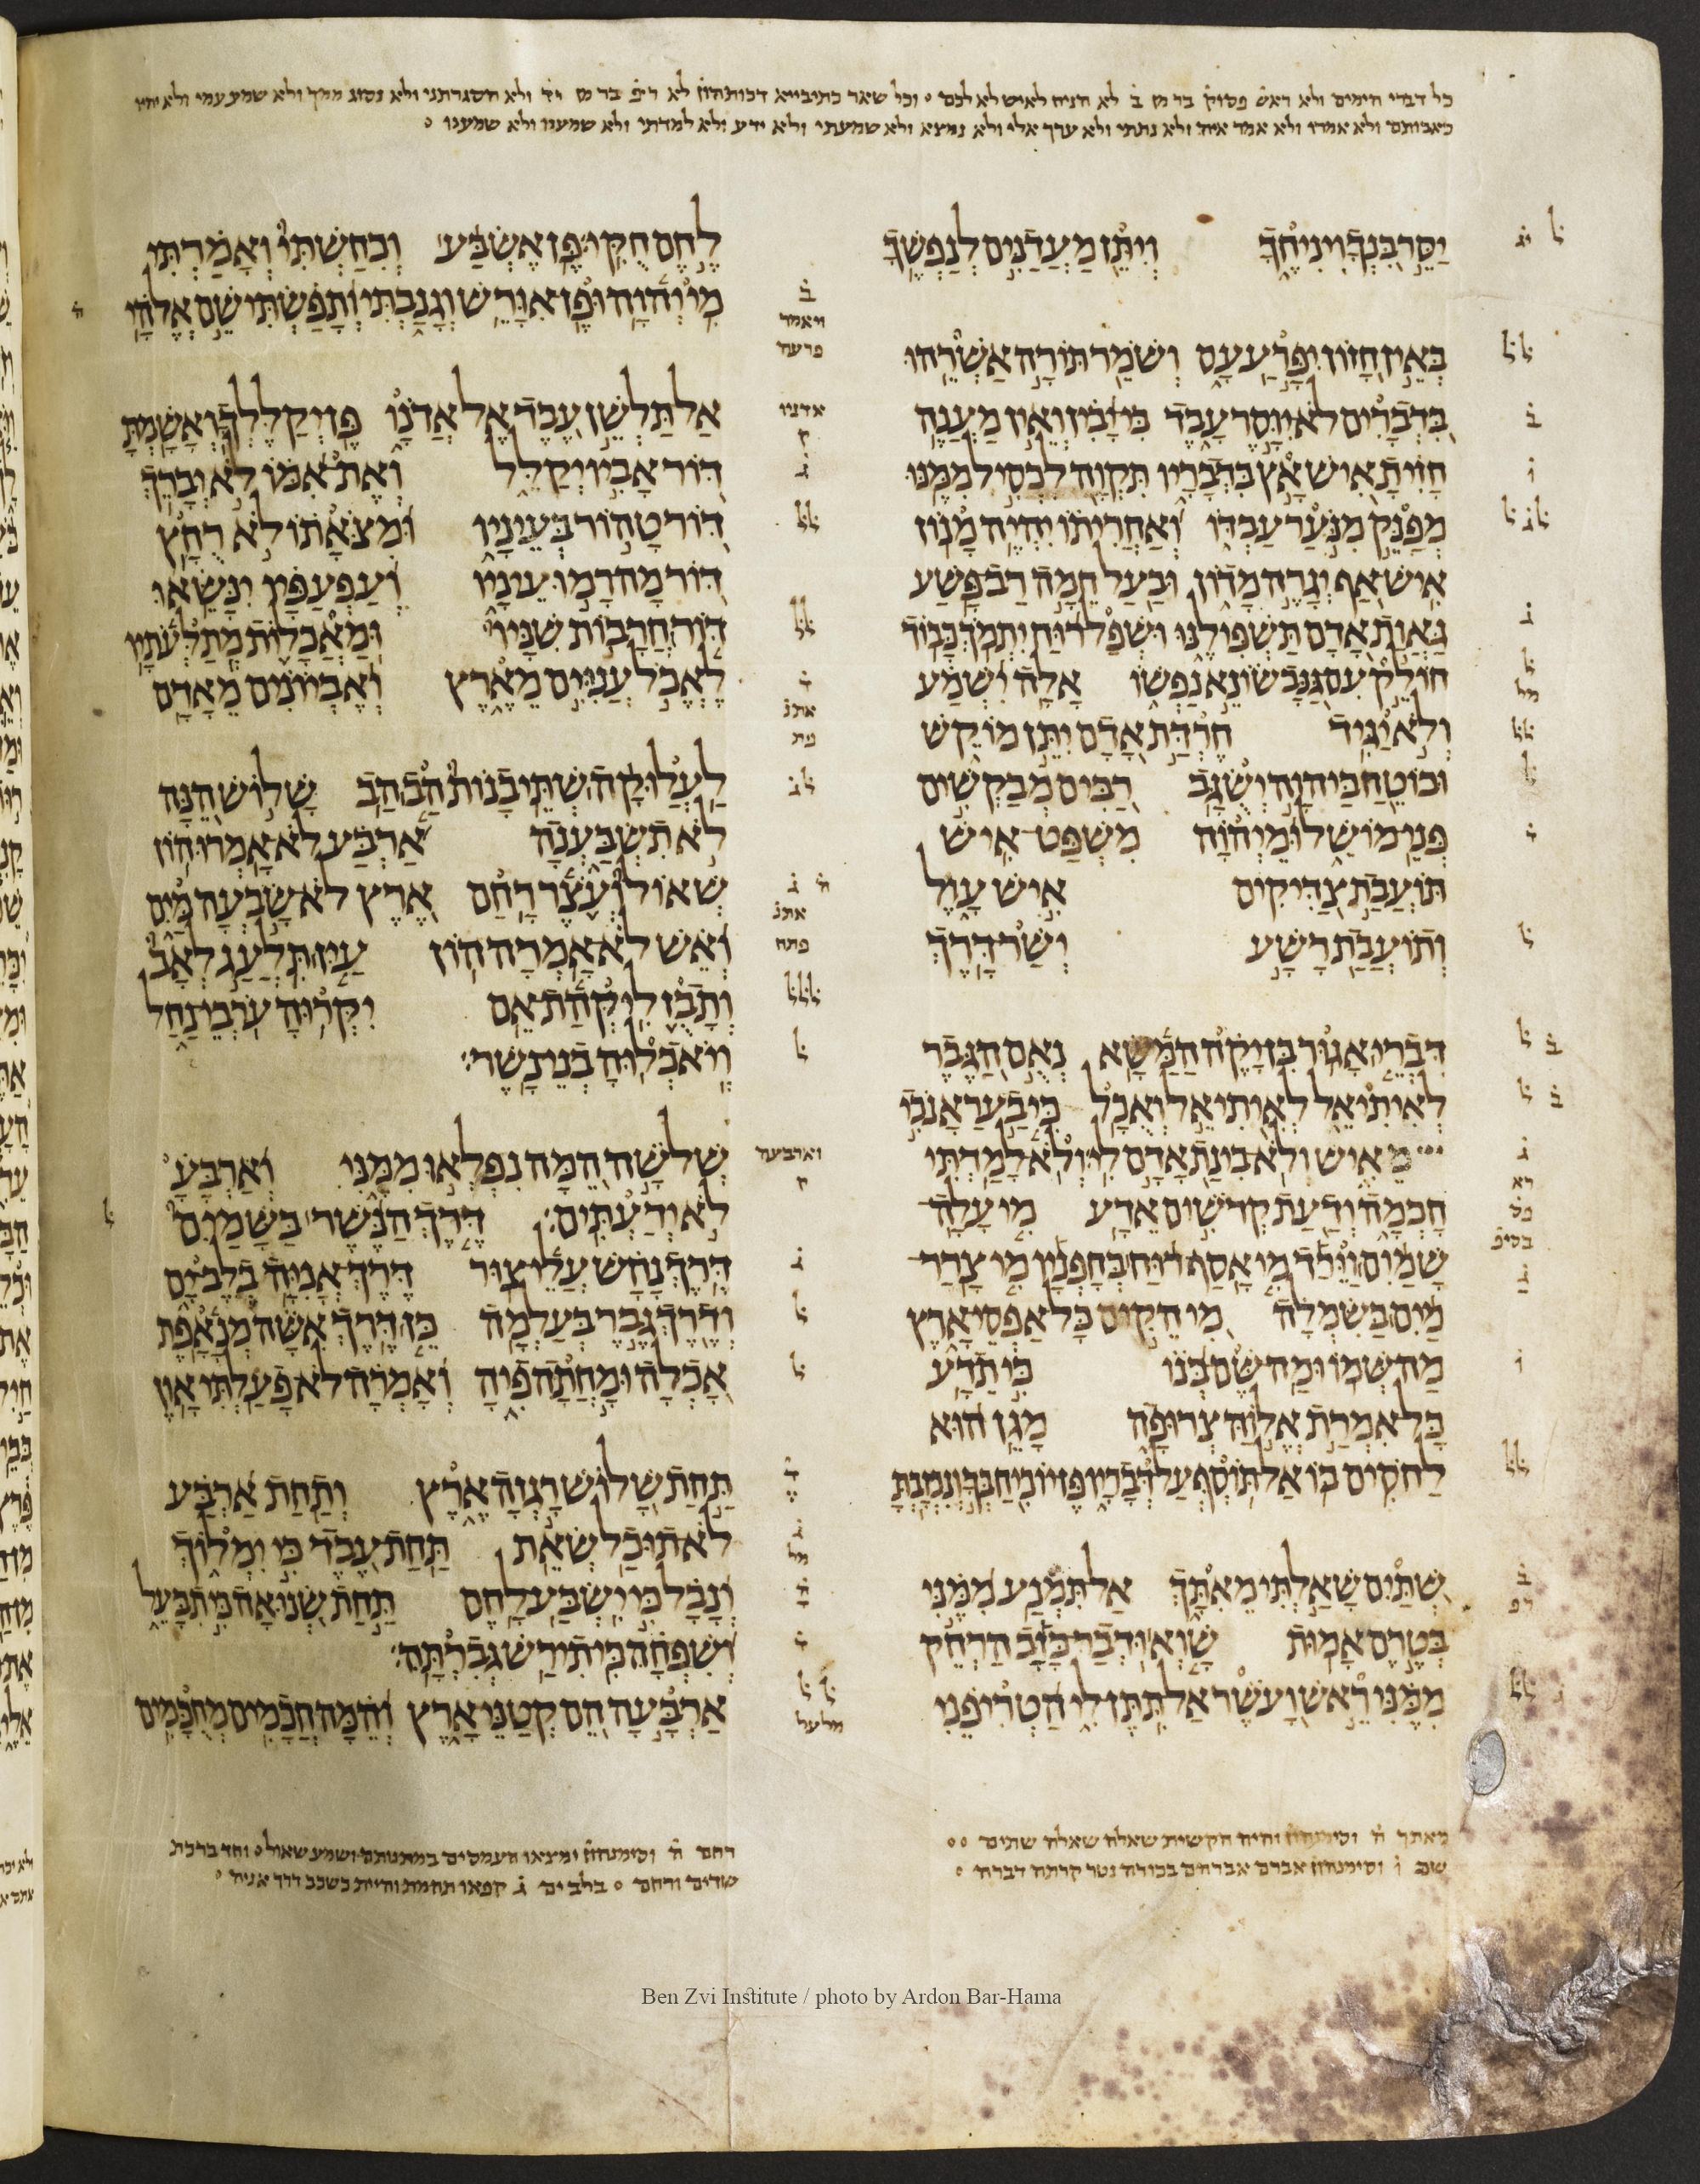 כל דברי הימים ולא ראש פסוק בר מן ב לא הניח לאיש לא לכם וכל שאר כתיבייא דכותהון לא ר״פ בר מן יד ולא הסגרתני ולא נסוג ממך ולא שמע עמי ולא יהיו
כאבותם ולא אמרו ולא אמר איה ולא נתתי ולא ערך אלי ולא נמצא ולא שמעתי ולא ידע ולא למדתי ולא שמענו ולא שמענו
יסר בנך ויניחך ויתן מעדנים לנפשך
באין חזון יפרע עם ושמר תורה אשרהו
בדברים לא יוסר עבד כי יבין ואין מענה
חזית איש אץ בדבריו תקוה לכסיל ממנו
מפנק מנער עבדו ואחריתו יהיה מנון
איש אף יגרה מדון ובעל חמה רב פשע
גאות אדם תשפילנו ושפל רוח יתמך כבוד
חולק עם גנב שונא נפשו אלה ישמע
ולא יגיד חרדת אדם יתן מוקש
ובוטח ביהוה ישגב רבים מבקשים
פני מושל ומיהוה משפט איש
תועבת צדיקים איש עול
ותועבת רשע ישר דרך
דברי אגור בן יקה המשא נאם הגבר
לאיתיאל לאיתיאל ואכל כי בער אנכי
מאיש ולא בינת אדם לי ולא למדתי
חכמה ודעת קדשים אדע מי עלה
שמים וירד מי אסף רוח בחפניו מי צרר
מים בשמלה מי הקים כל אפסי ארץ
מה שמו ומה שם בנו כי תדע
כל אמרת אלוה צרופה מגן הוא
לחסים בו אל תוסף על דבריו פן יוכיח בך ונכזבת
שתים שאלתי מאתך אל תמנע ממני
בטרם אמות שוא ודבר כזב הרחק
ממני ראש ועשר אל תתן לי הטריפני
לחם חקי פן אשבע וכחשתי ואמרתי
מי יהוה ופן אורש וגנבתי ותפשתי שם אלהי
אל תלשן עבד אל אדנו פן יקללך ואשמת
דור אביו יקלל ואת אמו לא יברך
דור טהור בעיניו ומצאתו לא רחץ
דור מה רמו עיניו ועפעפיו ינשאו
דור חרבות שניו ומאכלות מתלעתיו
לאכל עניים מארץ ואביונים מאדם
לעלוקה שתי בנות הב הב שלוש הנה
לא תשבענה ארבע לא אמרו הון
שאול ועצר רחם ארץ לא שבעה מים
ואש לא אמרה הון עין תלעג לאב
ותבז ליקהת אם יקרוה ערבי נחל
ויאכלוה בני נשר
שלשה המה נפלאו ממני וארבע
לא ידעתים דרך הנשר בשמים
דרך נחש עלי צור דרך אניה בלב ים
ודרך גבר בעלמה כן דרך אשה מנאפת
אכלה ומחתה פיה ואמרה לא פעלתי און
תחת שלוש רגזה ארץ ותחת ארבע
לא תוכל שאת תחת עבד כי ימלוך
ונבל כי ישבע לחם תחת שנואה כי תבעל
ושפחה כי תירש גברתה
ארבעה הם קטני ארץ והמה חכמים מחכמים
מאתך ה וסימנהון והיה הקשית שאלה שאלה שתים
שם ו וסימנהון אברם אברהם בכורה נטר קרתה דברה
רחם ה וסימנהון ימצאו העמסים במתנותם ושמע שאול וחד ברכת
שדים ורחם בלב ים ג קפאו תהמת והיית כשכב דרך אניה
Ben Zvi Institute / photo by Ardon Bar-Hama